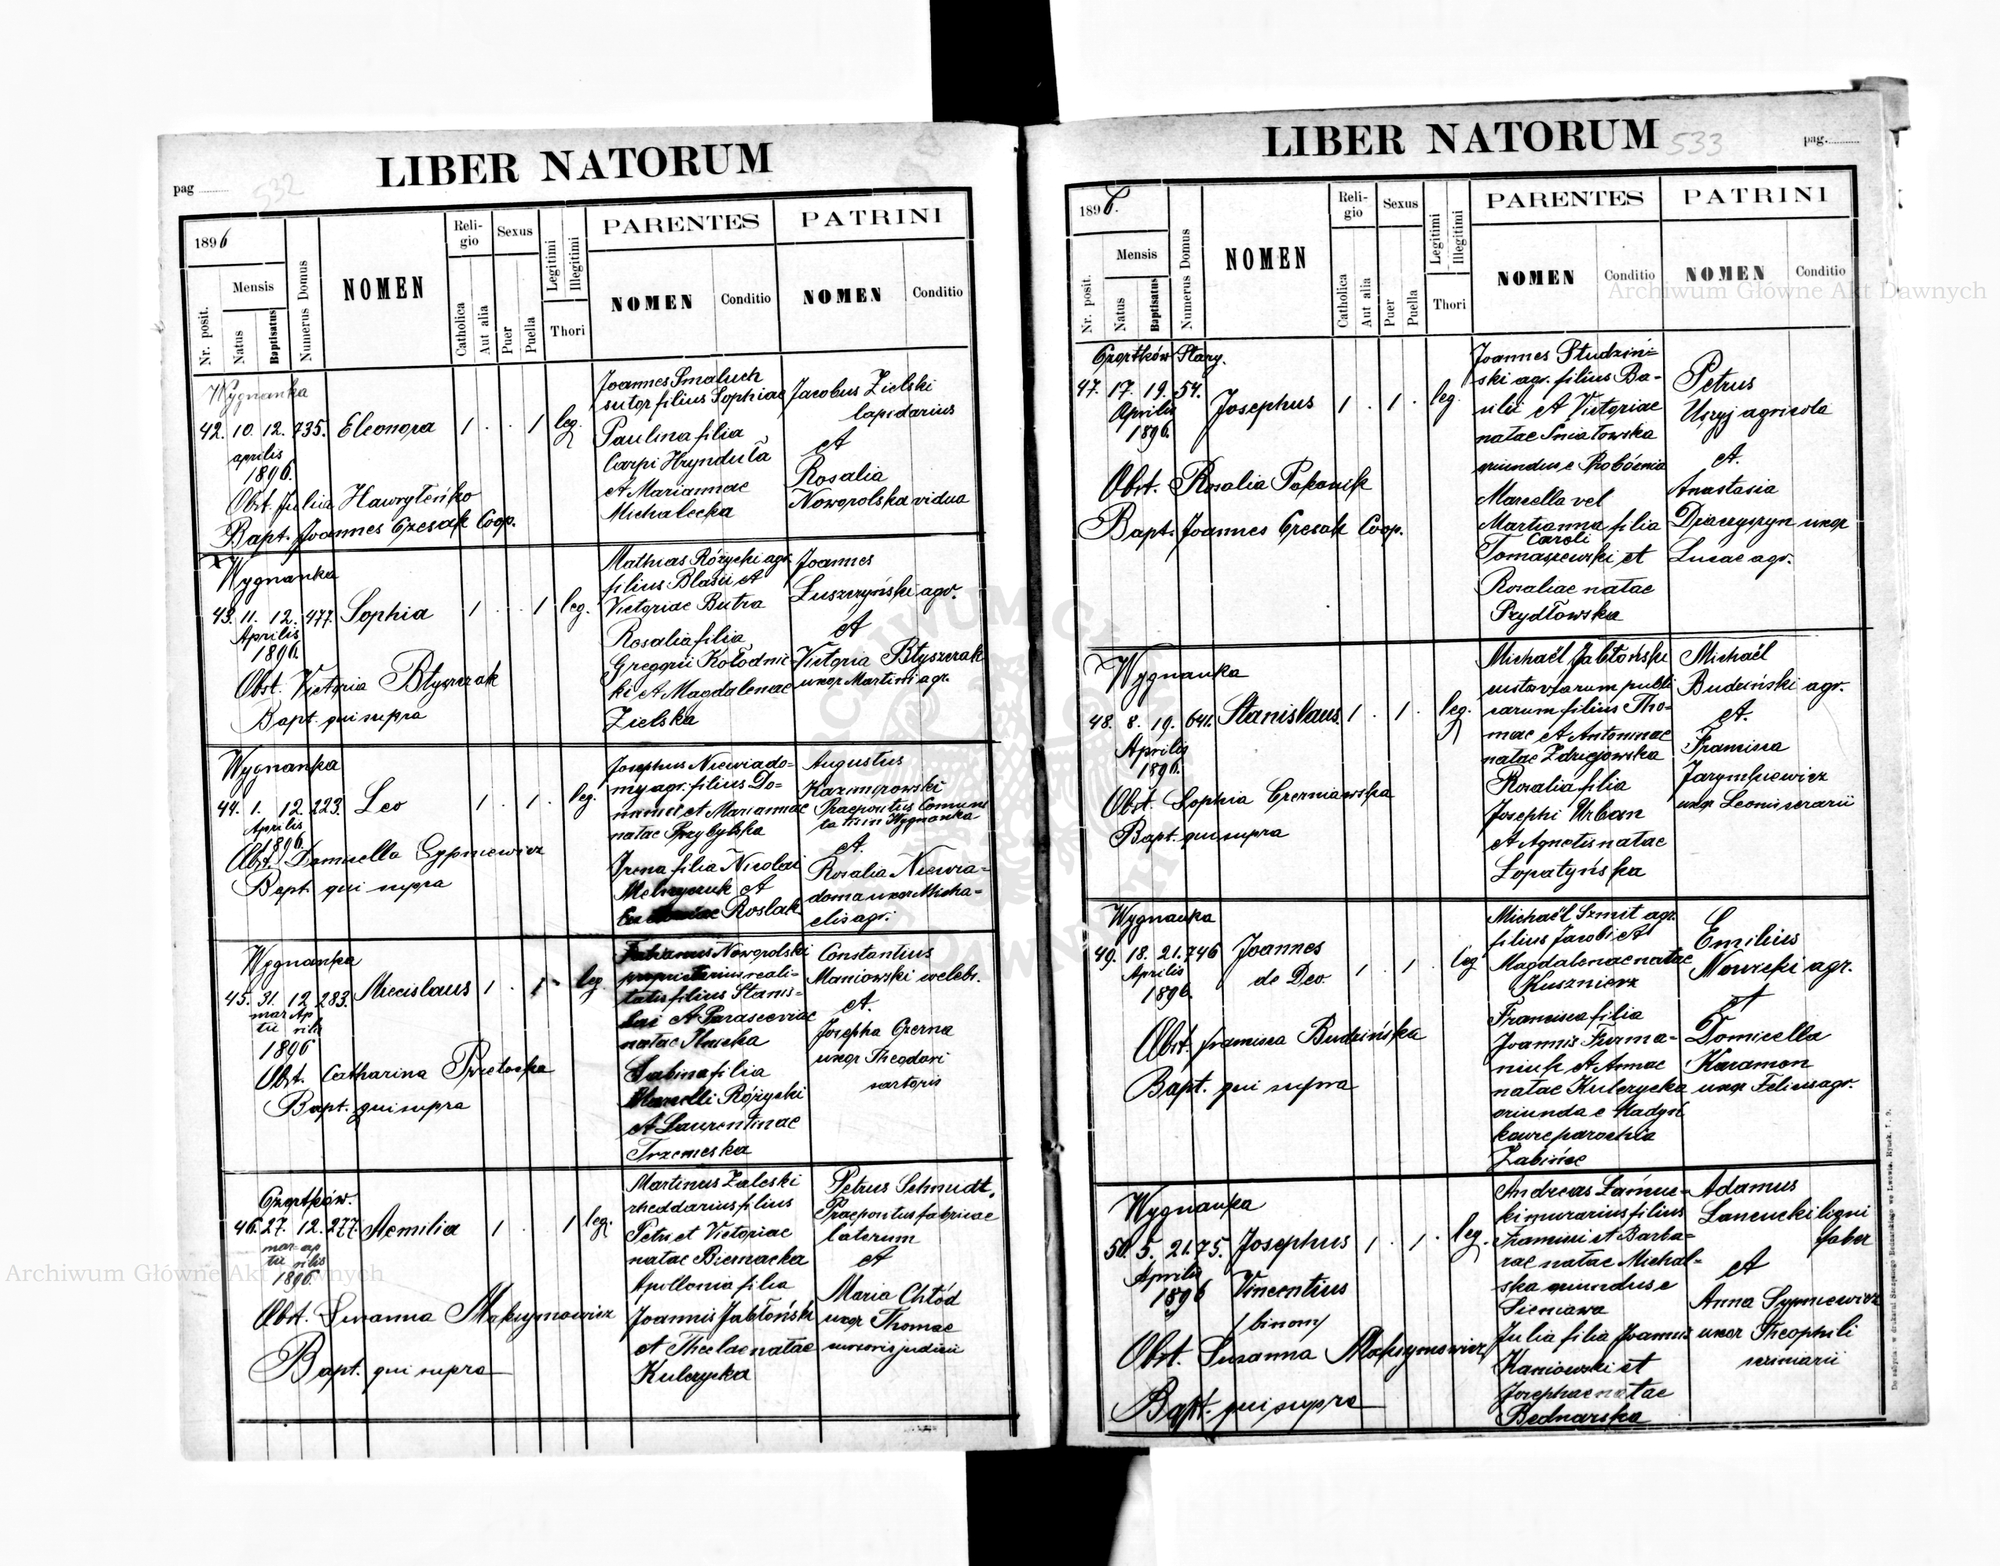 LIBER NATORUM
pag
532
1896
Mensis
Nr. posit.
Natus
Baptisatus
Numerus Domus
NOMEN
Religio
Catholica
Aut alia
Sexus
Puer
Puella
Legitimi
Illegitimi
Thori
PARENTES
NOMEN
Conditio
PATRINI
NOMEN
Conditio
Wygnanka
42. 10. 12. 735. Eleonora 1 . . 1 leg.
aprilis
1896.
Obst. Julia Hawryleńko
Bapt. Joannes Czesak Coop.
Joannes Smaluch
sutor filius Sophiae
Paulina filia
Carpi Hryndula
et Mariannae
Michalecka
Jacobus Zielski
lapidarius
et
Rosalia
Nowopolska vidua
Wygnanka
43. 11. 12. 477. Sophia 1 . . 1 leg.
Aprilis
1896.
Obst. Victoria Błyszczak
Bapt. qui supra
Mathias Różycki agr.
filius Blasii et
Victoriae Butra
Rosalia filia
Gregorii Kołodnic-
ki et Magdalenae
Zielska
Joannes
Łuszczyński agr.
et
Victoria Błyszczak
uxor Martini agr.
Wygnanka
44. 1. 12. 223. Leo 1 . 1 . leg.
Aprilis
1896.
Obst. Domicella Sypniewicz
Bapt. qui supra
Josephus Niewiado-
my agr. filius Do-
minici et Mariannae
natae Przybylska
Irena filia Nicolai
Melnyczuk et
Roslak
Augustus
Kazimirowski
Praepositus Communi
tatis in Wygnanka
et.
Rosalia Niewia-
doma uxor Micha-
elis agr.
Wygnanka
45. 31. 12. 283. Miecislaus 1 . 1 . leg.
mar Ap
tii rilis
1896
Obst. Catharina Pretocka
Bapt. qui supra
Fabianus Nowopolski
proprietarius reali-
tatis filius Stanis-
lai et Parasceviae
natae
Sabina filia
Marcelli Różycki
et Laurentinae
Trzemeska
Constantius
Maniowski
et.
Josepha Czerna
uxor Theodori
sartoris
Czortków.
46. 27. 12. 277. Aemilia 1 . 1 leg.
mar ap
tii rilis
1896.
Obst. Susanna Maksymowicz
Bapt. qui supra
Martinus Zaleski
rhedarius filius
Petri et Victoriae
natae Biernacka
Apollonia filia
Joannis Jabłoński
et Theclae natae
Kulczycka
Petrus Schmidt,
Praepositus fabricae
laterum
et
Maria Chłód
uxor Thomae
judicii
LIBER NATORUM
533
pag.
1896.
Mensis
Nr. posit.
Natus
Baptisatus
Numerus Domus
NOMEN
Religio
Catholica
Aut alia
Sexus
Puer
Puella
Legitimi
Illegitimi
Thori
PARENTES
NOMEN
Conditio
PATRINI
NOMEN
Conditio
Czortków Stary.
47. 17. 19. 54. Josephus 1 . 1 . leg.
Aprilis
1896.
Obst. Rosalia Pakonik
Bapt. Joannes Czesak Coop.
Joannes Studziń-
ski agr. filius Ba-
silii et Victoriae
natae Śniatowska
oriundus e
Marcella vel
Martianna filia
Caroli
Tomaszewski et
Rosaliae natae
Przydłowska
Petrus
Uszyj agricola
et.
Anastasia
Diaczyszyn uxor
Lucae agr.
Wygnanka
48. 8. 19. 641. Stanislaus 1 . 1 . leg.
Aprilis
1896.
Obst. Sophia Czerniawska
Bapt. qui supra
Michaël Jabłoński
custos viarum publi
carum filius Tho-
mae et Antoninae
natae Zdziejowska
Rosalia filia
Josephi Urban
et Agnetis natae
Łopatyńska
Michaël
Budziński agr.
et.
Francisca
Jarymkiewicz
uxor Leonis serarii
Wygnanka
49. 18. 21. 746 Joannes 1 . 1 . leg
de Deo
Aprilis
1896.
Obst. Francisca Budzińska
Bapt. qui supra
Michaël Szmit agr.
filius Jacobi et
Magdalenae natae
Kusznierz
Francisca filia
Joannis Furma-
niuk et Annae
natae Kulczycka
oriunda e Hadyń
kowce parochia
Żabińce
Emilius
Nowicki agr.
et
Domicella
Karamon
uxor Felicis agr.
Wygnanka
50. 5. 21. 75. Josephus 1 . 1 . leg.
Aprilis Vincentius
1896 /binomy
Obst. Susanna Maksymowicz
Bapt. qui supra
Andreas Łańcuc-
ki murarius filius
Francisci et Barba-
rae natae Michal-
ska oriundus e
Sieniawa
Julia filia Joannis
Kaniowski et
Josephae natae
Bednarska
Adamus
Łancucki ligni
faber
et
Anna Sypniewicz
uxor Theophili
scriniarii
Archiwum Główne Akt Dawnych
Archiwum Główne Akt Dawnych